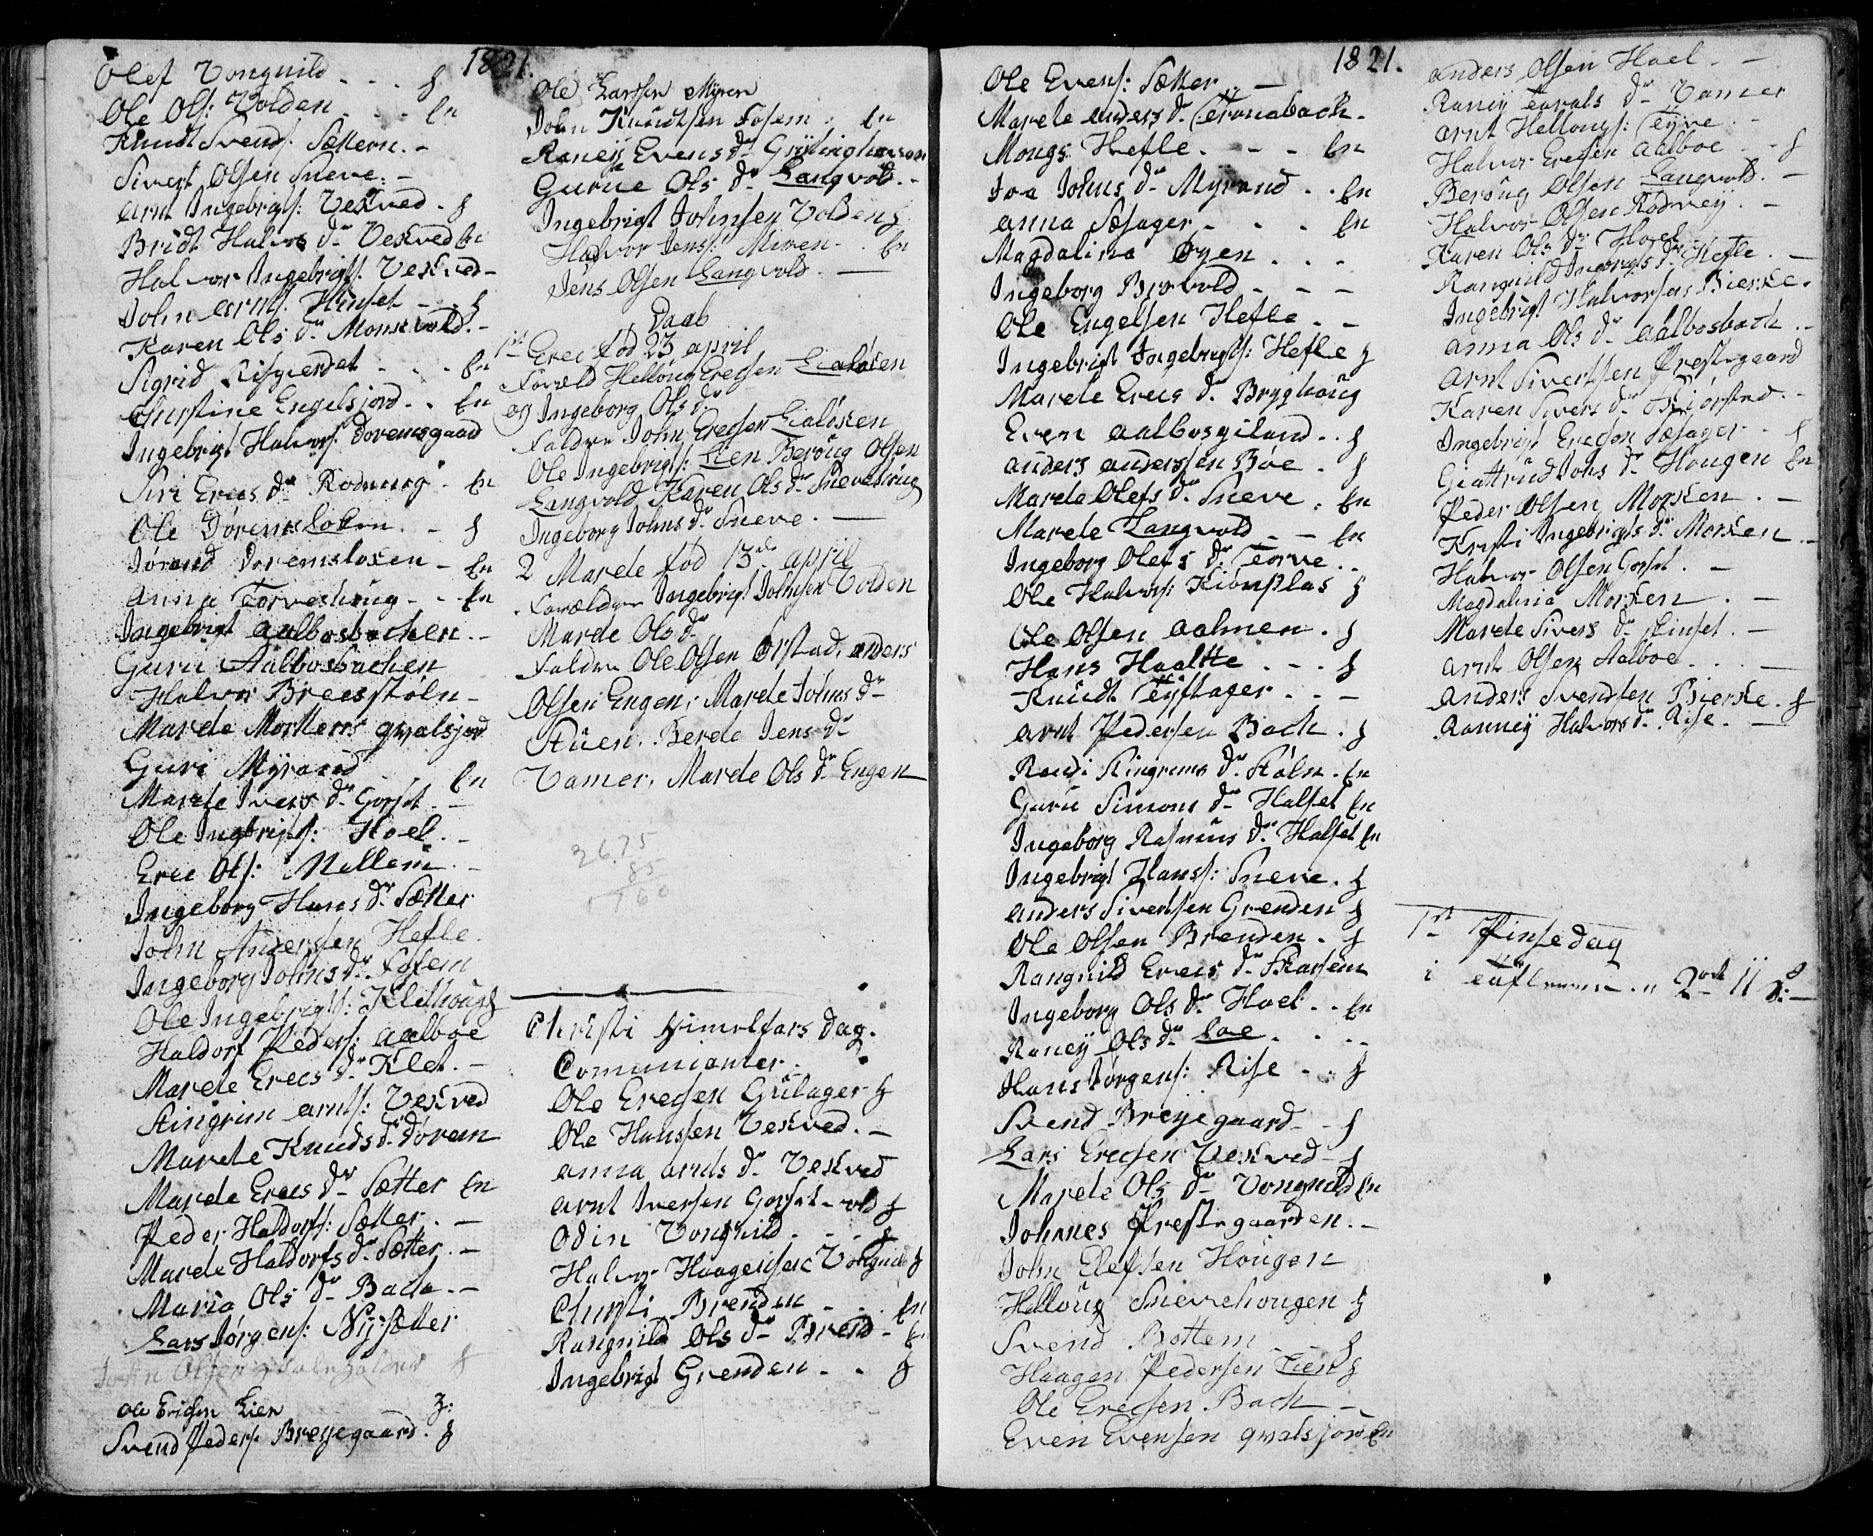 1821.
Olef Vongnild - - - f
Ole Ols: Volden - - En
Knudt Svends: Sættern. -
Sivert Olsen Sneve. -
Arnt Ingebrigts: Vekved. f
Bridt Halvors Dr Vekved En
Halvor Ingebrigts: Vekved -
John Arnts: Hinset - - f
Karen Ols Dr Monsevold. -
Sigrid Risgierdet - - - En
Christine Engelsjord. - En
Ingebrigt Halvors: Doremsgaad
Siri Erecs Dr Rodning - En
Ole Doremsloken. - f
Jorand Doremsloken - En
Anna Torveshoug - - En
Ingebrigt Aalbosbachen. -
Guru Aalbosbachen
Halvor Breesstøln -
Marete Mortens qvalsjord
Guri Myrand - En
Marete Ivers Dr Gorset. -
Ole Ingbrigts: Hoel. -
Erec Ols: Mellem -
Ingeborg Hans Dr Sætter
John Andersen Hefle.
Ingeborg Johns Dr Fosem
Ole Ingebrigts: Klethoug f
Haldorf Peders: Aalboe
Marete Erecs Dr Klet. -
Stingrim Arnts: Vekved
Marete Knuds Dr Dørem
Marete Erecs Dr Sætter En
Peder Haldorfs: Sætter. -
Marete Haldorfs Dr Sætter. -
Maria Ols Dr Bach. -
Lars Jørgens: Nysætter
John Olsen f
Ole Ericsen Lien f:
Svend Peders: Breyegaard. f
Ole Larssen Myren
John Knudtsen Fosem. En
Raney Evens Dr Grytinghougen
Gurue Ols Dr Langvold. -
Ingebrigt Johnsen Volden f
Halvor Jens: Miren - . En
Jens Olsen Langvold. -
Daab
1st Erec fød 23 april
Foræld Helloug Erecsen Lialøken
og Ingeborg Ols Dr
Faldre John Erecsen Lialøken
Ole Ingebrigts: Lien Beroug Olsen
Langvold Karen Ols Dr Snevesbrug
Ingeborg Johns Dr Sneve. -
2 Marete fød 13de april
Forældre Ingebrigt Johnsen Volden
Marete Ols Dr
Faldre Ole Olsen Orstad, Anders
Olsen Engen, Marete Johns Dr
Stuen. Berete Jens Dr
Vamer, Marete Ols Dr Engen
26.75
85
Christi Himelfars Dag.
Comunicanter.
Ole Erecsen Gulager f
Ole Hanssen Vekved. -
Anna Arnts Dr Vekved
Arnt Iversen Gorset-vold f
Odin Vongnild. - - f
Halvor Haagensen Vongnild f
Christi Brenden - - . En
Rangnild Ols Dr Brend - En
Ingebrigt Grenden. - . f
1821.
Ole Evens: Sætter -
Marete Anders Dr Tronabach.
Mongs Hefle. - - - En
Joa Johns Dr Myrand . . En
Anna Sæsager - - . En
Magdalina Øyen . . .
Ingeborg Brovold - - -
Ole Engelsen Hefle. -
Ingebrigt Ingebrigts: Hefle f
Marete Erecs Dr Bryghoug
Even Aalbosgiland. . f
Anders Anderssen Bøe. f
Marete Olefs Dr Sneve. En
Marete Langvold - - En
Ingeborg Olefs Dr Torve. .
Ole Halvors: Kionsplas f
Ole Olsen Aalmen. f
Hans Haaltte . - . f
Knudt Tyftager. . . -
Arnt Pedersen Bach. f
Randi Ringrims Dr Støln. En
Guru Simons Dr Halset En
Ingeborg Rasmus Dr Halset En
Ingebrigt Hans: Sneve. f
Anders Sivertsen Grenden f
Ole Olsen Brenden. f
Rangnild Erecs Dr Skarsem
Ingeborg Ols Dr Hoel. . En
Raney Ols Dr Loe. . . .
Hans Jørgens: Rise . . f
Svend Breyegaard - f
Lars Erecsen Vekved - f
Marete Ols Dr Vongnild En
Johannes Prestegaarden. -
John Elefsen Hougen
Helloug Snevehougen f
Svend Bottem f
Haagen Pedersen Lien f
Ole Erecsen Bach -
Even Evensen qvalsjord En
Anders Olsen Hoel. -
Raney Torvals Dr Vamer
Arnt Hellougs: Tyve. -
Halvor Erecsen Aalboe . - f
Beroug Olsen Langvold. -
Halvor Olsen Rodvey. -
Karen Ols Dr Hoel
Rangnild Ingbrigts Dr Hefle. -
Ingebrigt Halvorsen Bierke.
Anna Ols Dr Aalbosbach. -
Arnt Sivertsen Prestegaard
Karen Sivers Dr Skiørstad. -
Ingebrigt Erecsen Sæsager - f
Giertrud Johs Dr Hougen En
Peder Olsen Morken. -
Kristi Ingebrigts Dr Morken -
Halvor Olsen Gorset. -
Magdalina Morken. -
Marete Sivers Dr Hinset. -
Arnt Olsen Aalboe. . . -
Anders Svendsen Bierke. f
Ranney Halvors Dr Rise. -
1st Pinsedag
i 2ode 11 -